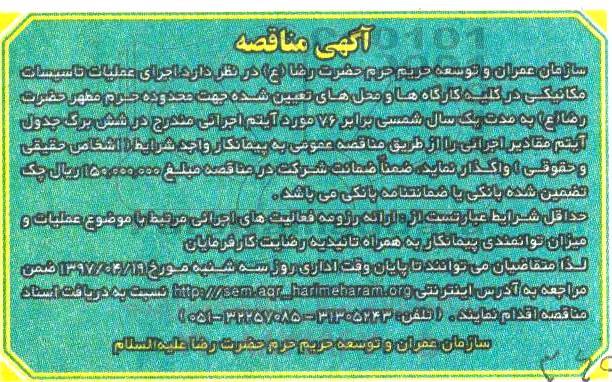 آگهی مناقصه
سازمان عمران و توسعه حریم حرم حضرت رضا (ع) در نظر دارد اجرای عملیات تاسیسات
مکانیکی در کلیه کارگاه ها و محل های تعیین شده جهت محدوده حرم مطهر حضرت
رضا (ع) به مدت یک سال شمسی برابر ۷۶ مورد آیتم اجرائی مندرج در شش برگ جدول
آیتم مقادیر اجرائی را از طریق مناقصه عمومی به پیمانکار واجد شرایط ( اشخاص حقیقی
و حقوقی ) واگذار نماید، ضمناً ضمانت شرکت در مناقصه مبلغ ۱۵۰،۰۰۰،۰۰۰ ریال چک
تضمین شده بانکی یا ضمانتنامه بانکی می باشد .
حداقل شرایط عبارتست از : ارائه رزومه فعالیت های اجرائی مرتبط با موضوع عملیات و
میزان توانمندی پیمانکار به همراه تائیدیه رضایت کارفرمایان
لذا متقاضیان می توانند تا پایان وقت اداری روز سه شنبه مورخ ۱۳۹۷/۰۴/۱۹ ضمن
مراجعه به آدرس اینترنتی http://sem.aqr_harimeharam.org نسبت به دریافت اسناد
مناقصه اقدام نمایند . ( تلفن: ۳۱۳۰۵۲۴۳ – ۳۲۲۵۷۰۸۵ – ۰۵۱ )
سازمان عمران و توسعه حریم حرم حضرت رضا علیه‌السلام